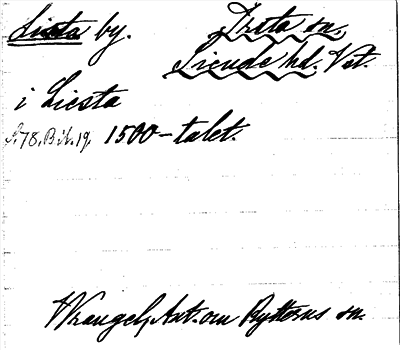 Lista by. Irsta sn.
Siende hd. Vst.
i Liesta
S. 78. Bil. 19. 1500-talet.
Wrangel, Ant. om Rytterns sn.